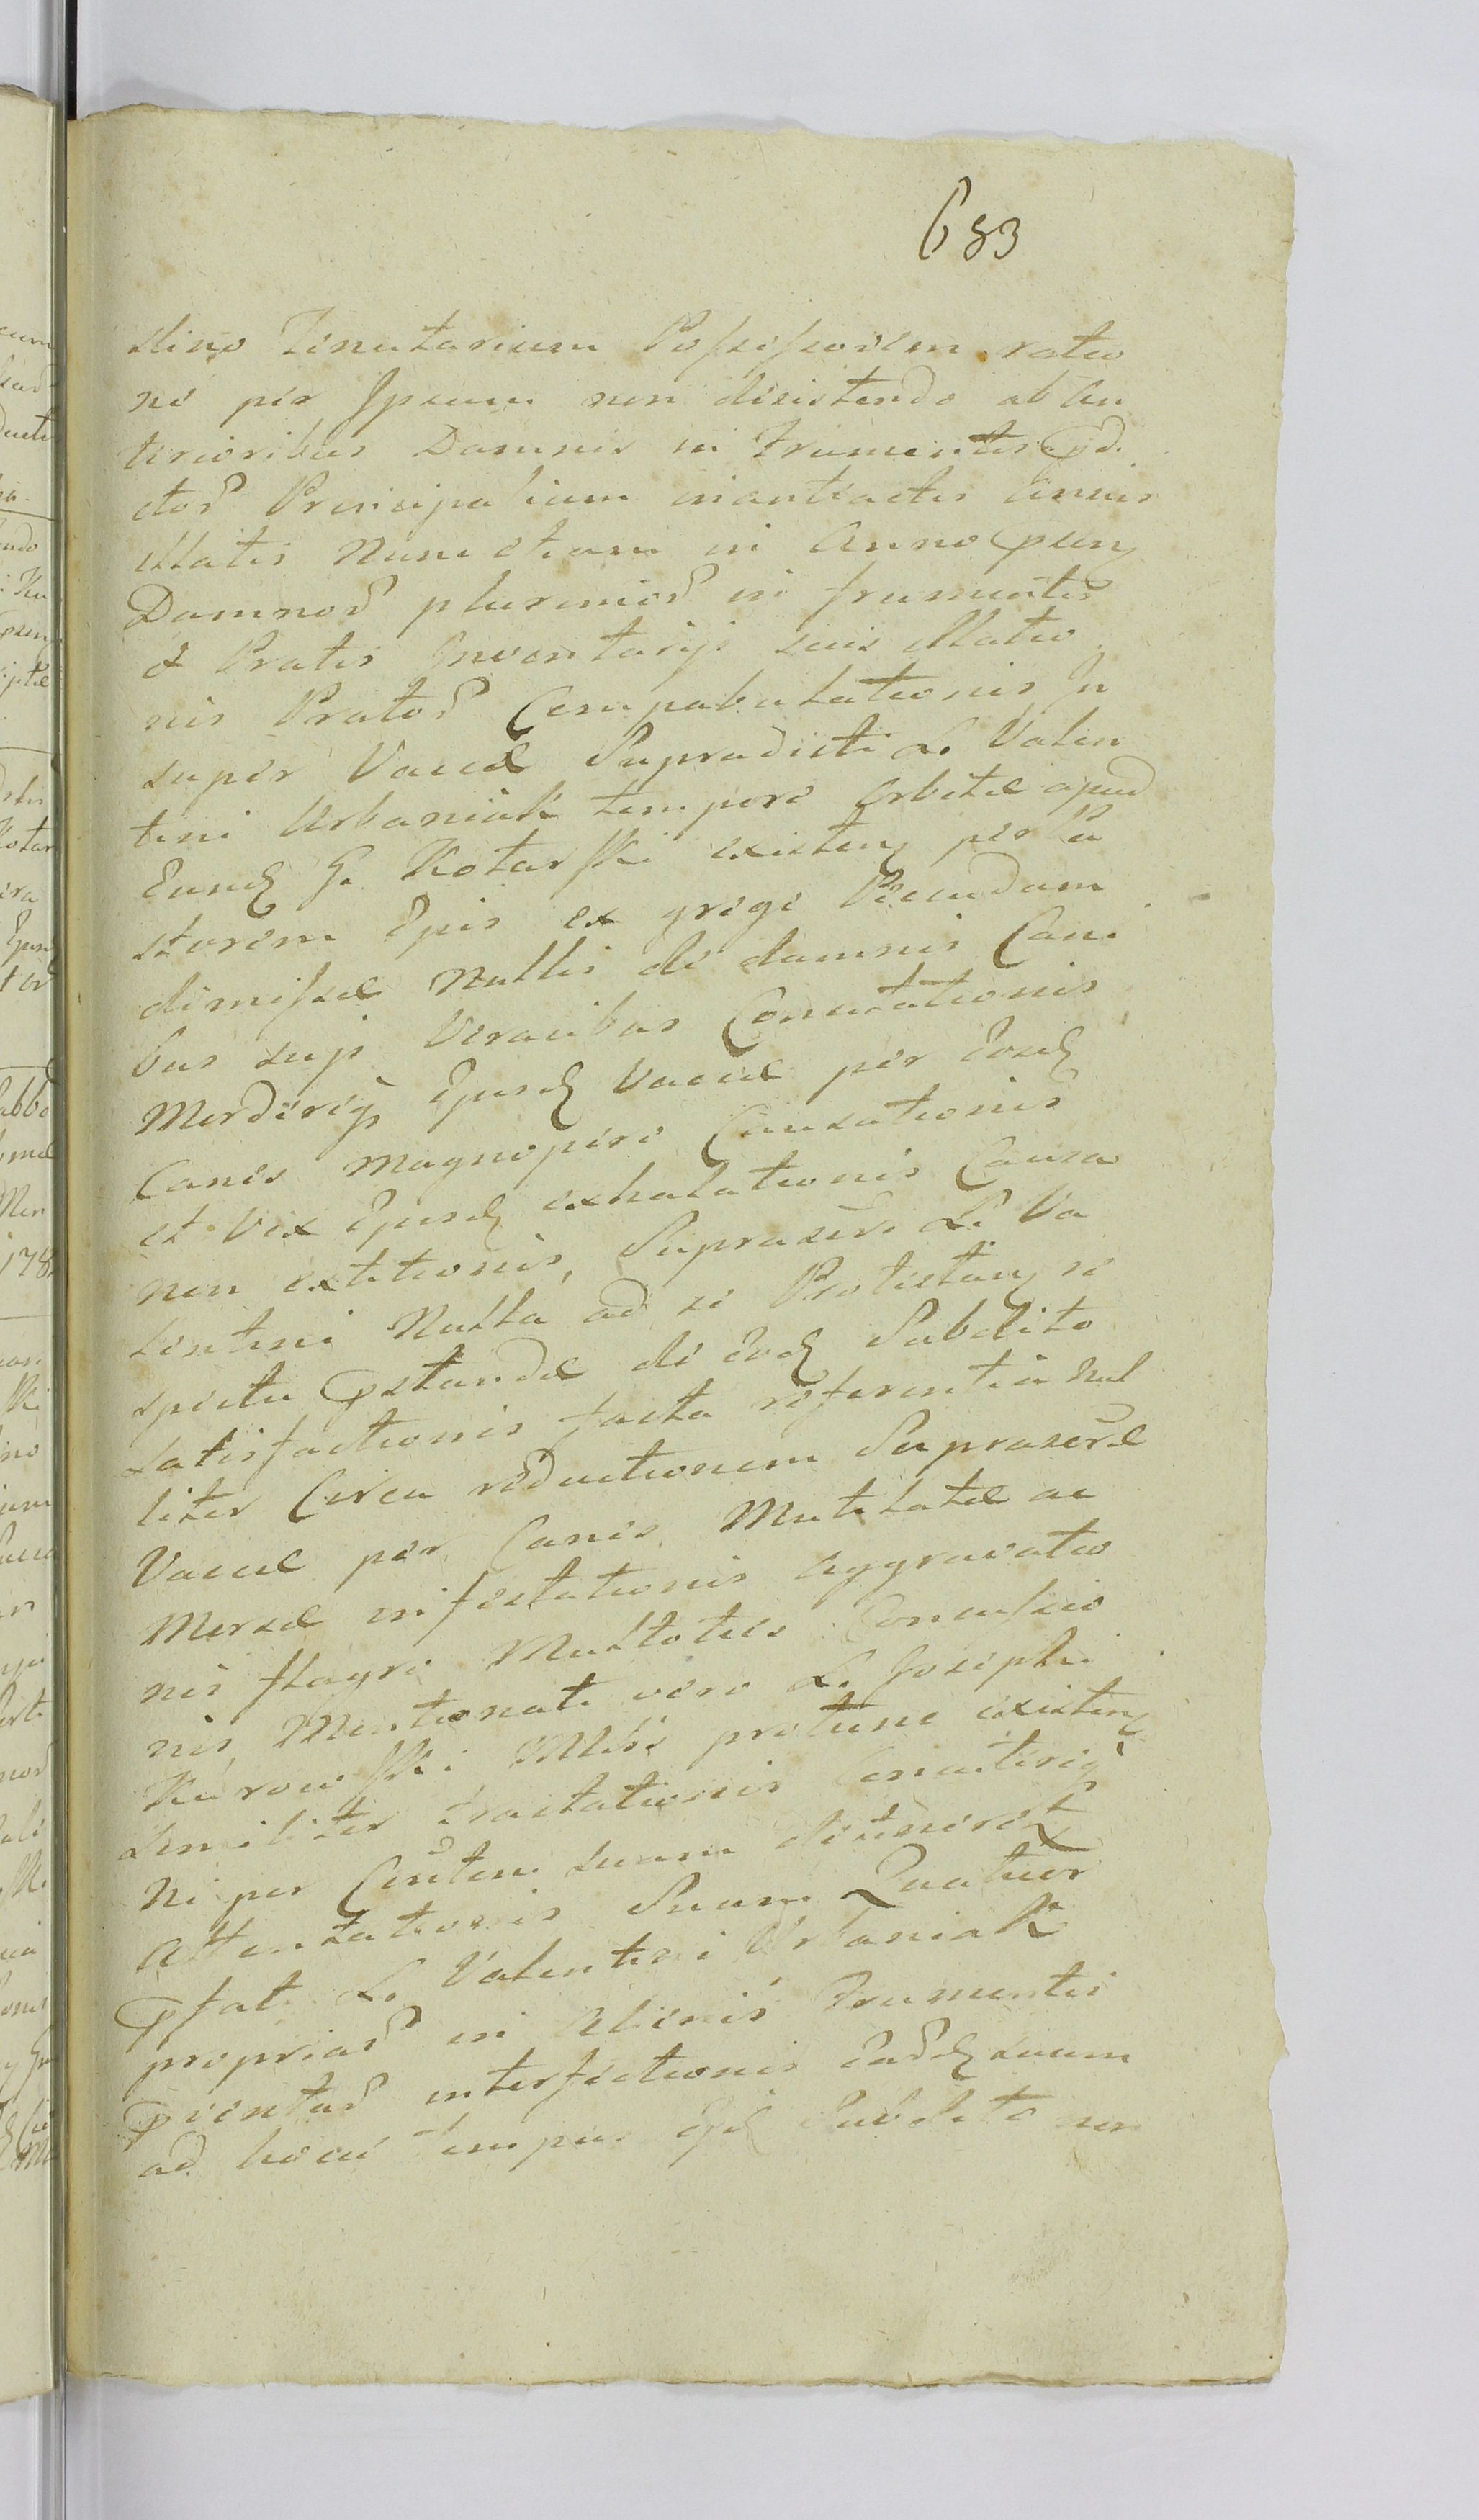 683
stino Tenutarium Possessorem ratio
ne per Ipsum non desistendo ab an
terioribus Damnis in Frumentis pd.
ctor Principalium in antractis Annis
illatis Nunc etiam in Anno pnn
Damnor plurimor in frumentis
& Pratis Inventarij suis illatio
nis Prator Compabulationis In
super Vaccæ Supradicti L. Valen
tini Urbaniak tempore Orbitæ apud
Eund G. Kotarski existen per Pa
storem Ejus ex grege Pecudum
dimissæ Nullis de damnis Cani
bus sup Veracibus Concitationis
Morderij Ejusd Vaccæ per Eosd
Canes Magnopere Causationis
et vix Ejusd exhalationis Causa
non extitionis, Suprascr. L. Va
lentini Nulla ad se Protestan re
spectu pstandæ de Eod Subdito
Satisfactionis facta referentia Nul
liter Circa reductionem Suprascræ
Vaccæ per Canes Mutilatæ ac
Morsæ infestationis Aggravatio
nis flagro Multoties Concussio
nis, Mentionati vero L. Josephi
Kurowski, Mlis protunc existen
Similiter tractationis
Ni per suam
Attentationis Suam Quatuor
pfat. L. Valentini Urbaniak
propriar in Alienis Frumentis
pventar interfectionis Ead suum
ad hocce tempus Ejd Subdito non